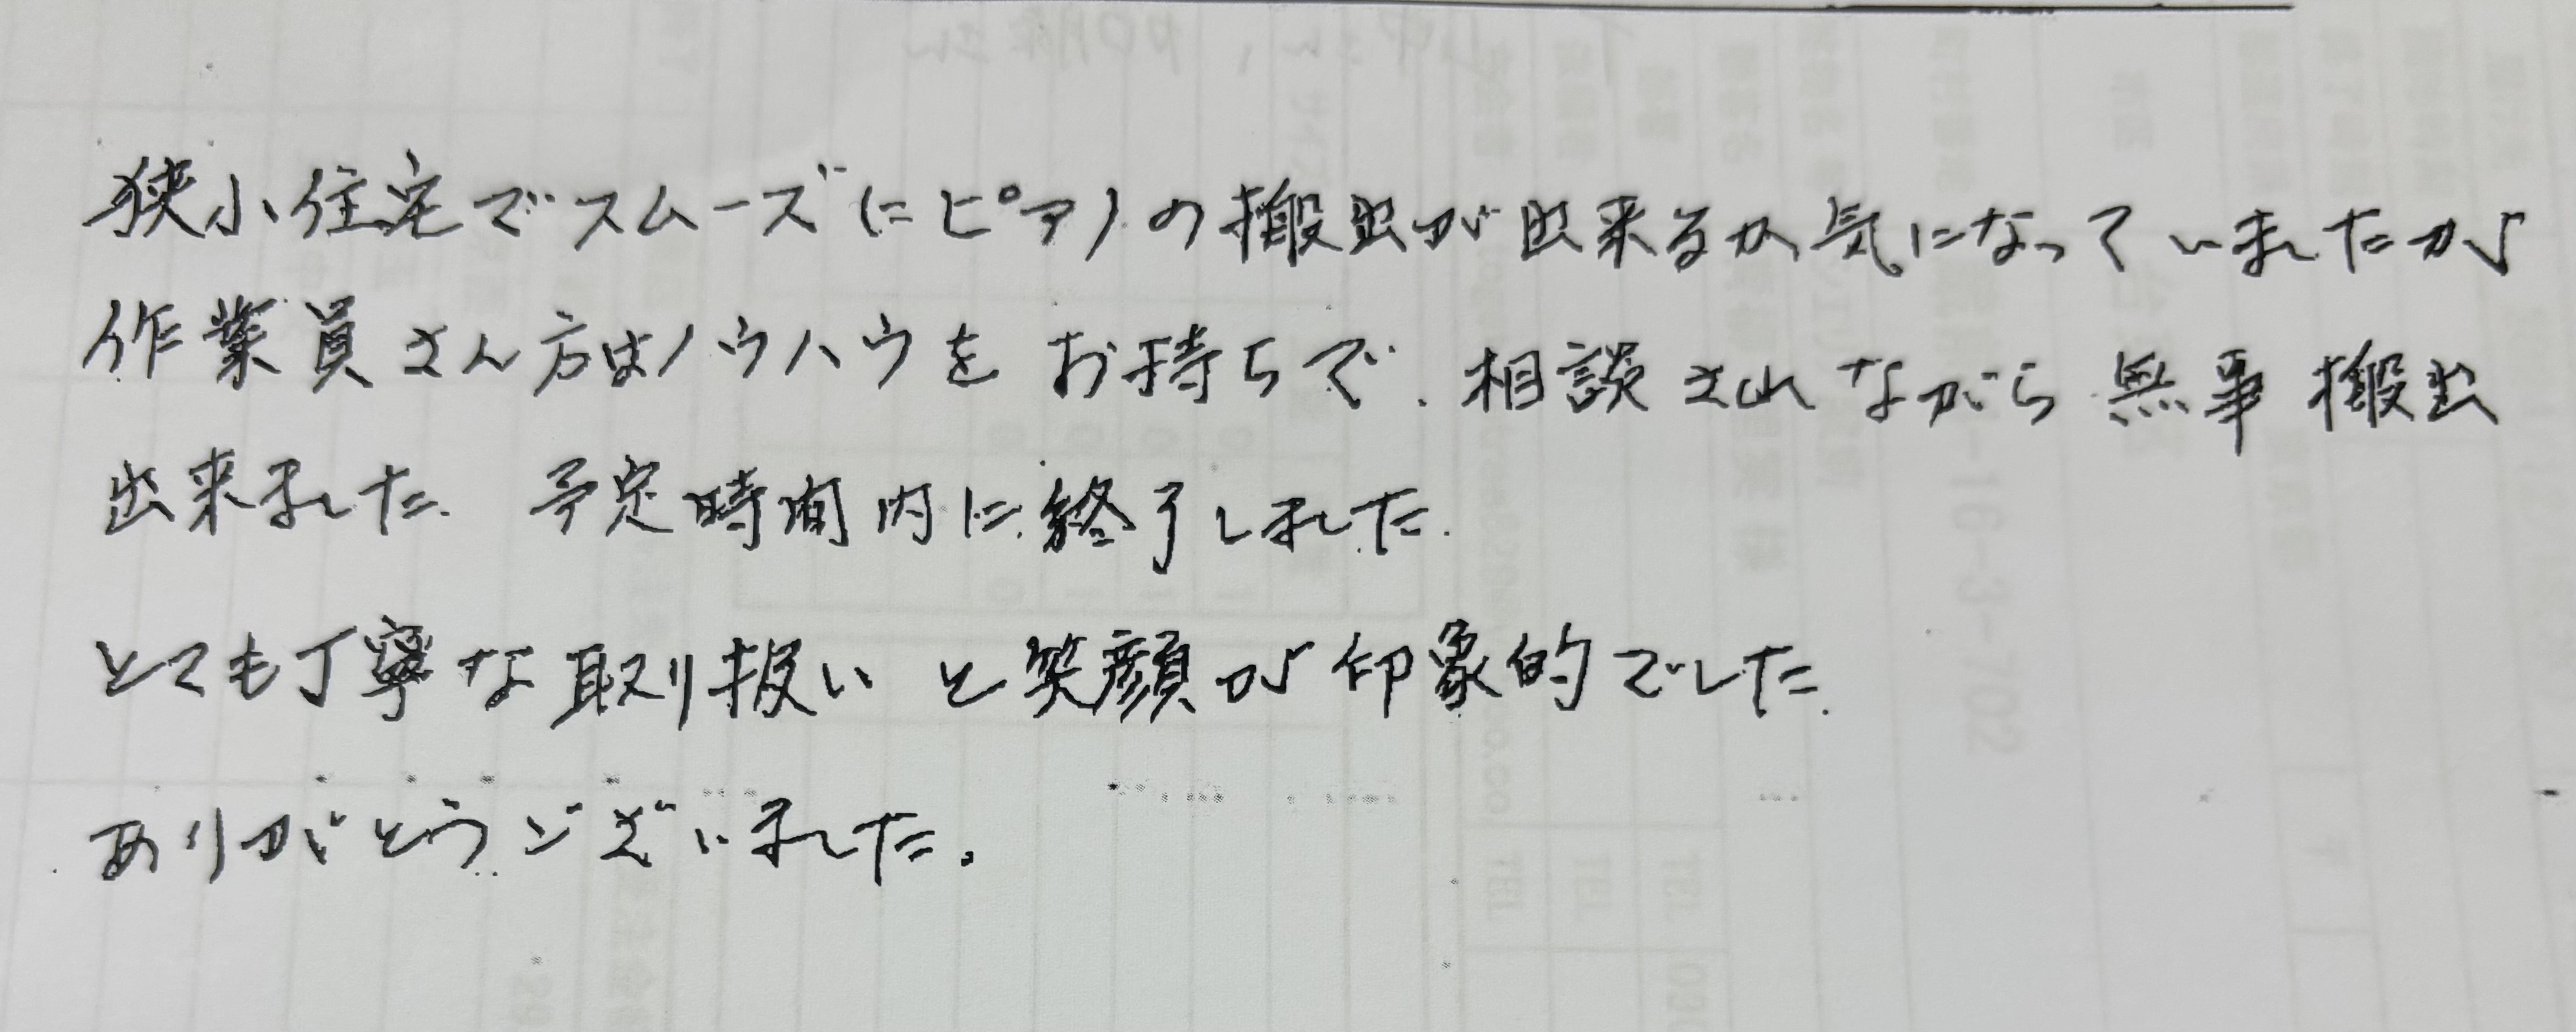 狭小住宅でスムーズにピアノの搬出が出来るか気になっていましたが
作業員さん方はノウハウをお持ちで、相談されながら無事搬出
出来ました。予定時間内に終了しました。
とても丁寧な取り扱いと笑顔が印象的でした。
ありがとうございました。